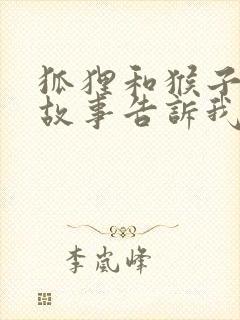 狐狸和猴子
故事告訴我
李嵐峰